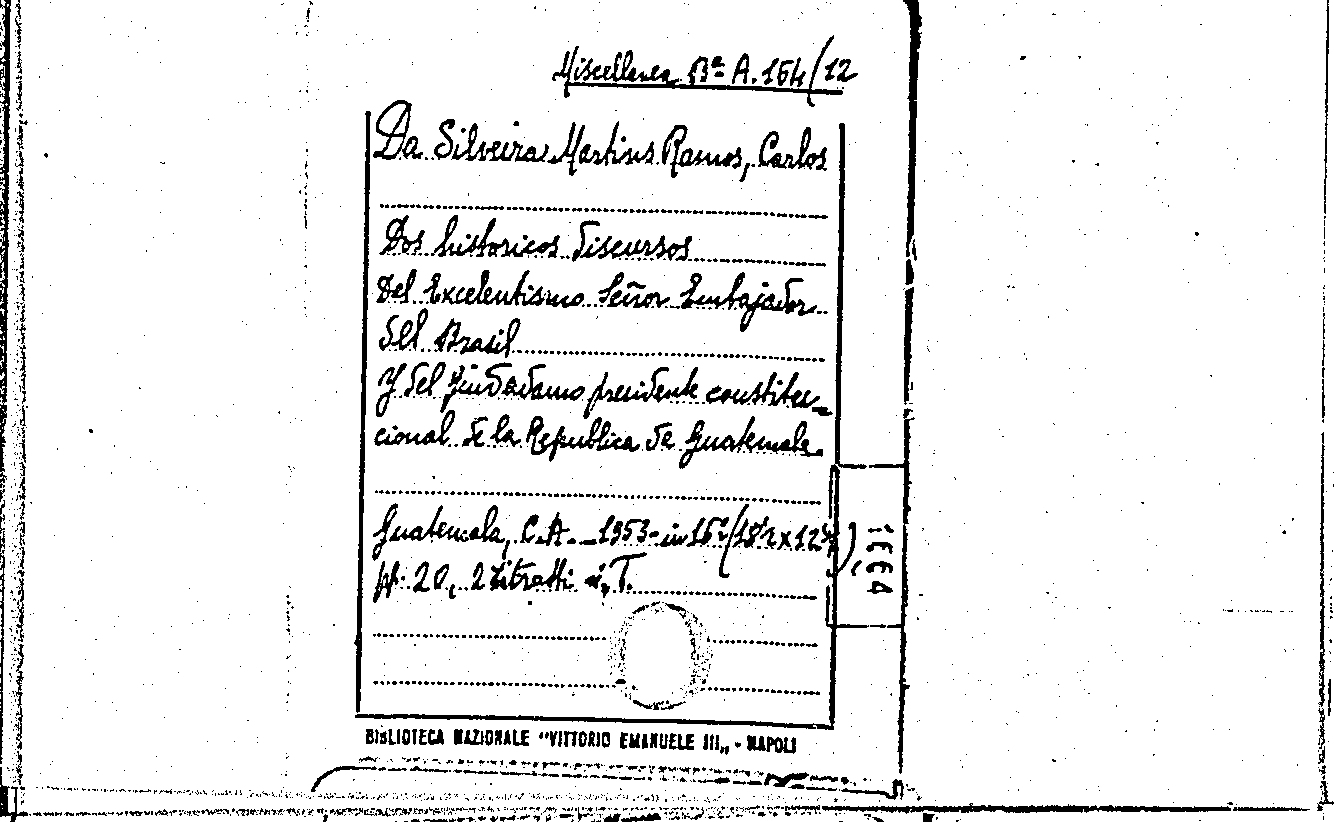 Miscellanea Bª A. 164/12
Da Silveira Martins Ramos, Carlos
Dos historicos discursos
del Excelentismo Señor Embajador
del Brasil
Y del Ciudadamo presidente constitu_
cional de la Republica de Guatemala.
Guatemala, C.A. _1953- in 16º (18½ x 12½),
pp. 20, 2 ritratti n. T.
1664
BIBLIOTECA NAZIONALE "VITTORIO EMANUELE III„ - NAPOLI